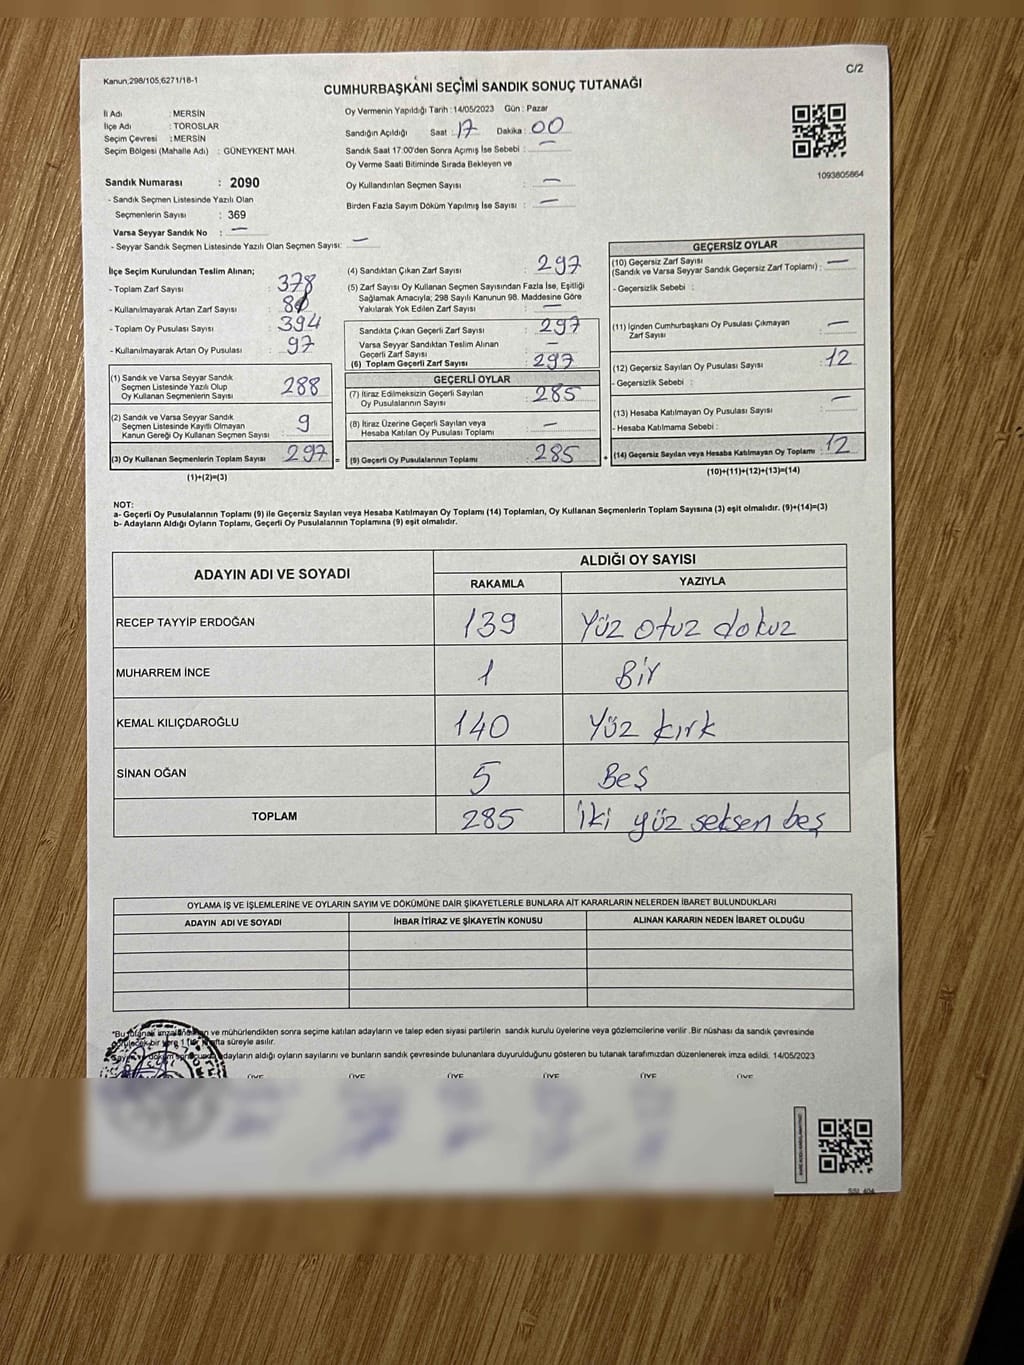 Kanun,298/105,6271/18-1
C/2
CUMHURBAŞKANI SEÇİMİ SANDIK SONUÇ TUTANAĞI
İl Adı : MERSİN
İlçe Adı : TOROSLAR
Seçim Çevresi : MERSİN
Seçim Bölgesi (Mahalle Adı) : GÜNEYKENT MAH.
Sandık Numarası : 2090
- Sandık Seçmen Listesinde Yazılı Olan
Seçmenlerin Sayısı : 369
Varsa Seyyar Sandık No : —
- Seyyar Sandık Seçmen Listesinde Yazılı Olan Seçmen Sayısı: —
Oy Vermenin Yapıldığı Tarih : 14/05/2023 Gün : Pazar
Sandığın Açıldığı Saat : 17 Dakika : 00
Sandık Saat 17:00'den Sonra Açımış İse Sebebi : —
Oy Verme Saati Bitiminde Sırada Bekleyen ve
Oy Kullandırılan Seçmen Sayısı : —
Birden Fazla Sayım Döküm Yapılmış İse Sayısı : —
1093805864
İlçe Seçim Kurulundan Teslim Alınan;
- Toplam Zarf Sayısı : 378
- Kullanılmayarak Artan Zarf Sayısı :
- Toplam Oy Pusulası Sayısı : 394
- Kullanılmayarak Artan Oy Pusulası : 97
(1) Sandık ve Varsa Seyyar Sandık
Seçmen Listesinde Yazılı Olup
Oy Kullanan Seçmenlerin Sayısı : 288
(2) Sandık ve Varsa Seyyar Sandık
Seçmen Listesinde Kayıtlı Olmayan
Kanun Gereği Oy Kullanan Seçmen Sayısı : 9
(3) Oy Kullanan Seçmenlerin Toplam Sayısı : 297 =
(1)+(2)=(3)
(4) Sandıktan Çıkan Zarf Sayısı : 297
(5) Zarf Sayısı Oy Kullanan Seçmen Sayısından Fazla İse, Eşitliği
Sağlamak Amacıyla; 298 Sayılı Kanunun 98. Maddesine Göre
Yakılarak Yok Edilen Zarf Sayısı : —
Sandıkta Çıkan Geçerli Zarf Sayısı : 297
Varsa Seyyar Sandıktan Teslim Alınan
Geçerli Zarf Sayısı : —
(6) Toplam Geçerli Zarf Sayısı : 297
GEÇERLİ OYLAR
(7) İtiraz Edilmeksizin Geçerli Sayılan
Oy Pusulalarının Sayısı : 285
(8) İtiraz Üzerine Geçerli Sayılan veya
Hesaba Katılan Oy Pusulası Toplamı : —
(9) Geçerli Oy Pusulalarının Toplamı : 285 +
GEÇERSİZ OYLAR
(10) Geçersiz Zarf Sayısı
(Sandık ve Varsa Seyyar Sandık Geçersiz Zarf Toplamı) : —
- Geçersizlik Sebebi :
(11) İçinden Cumhurbaşkanı Oy Pusulası Çıkmayan
Zarf Sayısı : —
(12) Geçersiz Sayılan Oy Pusulası Sayısı : 12
- Geçersizlik Sebebi :
(13) Hesaba Katılmayan Oy Pusulası Sayısı : —
- Hesaba Katılmama Sebebi :
(14) Geçersiz Sayılan veya Hesaba Katılmayan Oy Toplamı : 12
(10)+(11)+(12)+(13)=(14)
NOT:
a- Geçerli Oy Pusulalarının Toplamı (9) ile Geçersiz Sayılan veya Hesaba Katılmayan Oy Toplamı (14) Toplamları, Oy Kullanan Seçmenlerin Toplam Sayısına (3) eşit olmalıdır. (9)+(14)=(3)
b- Adayların Aldığı Oyların Toplamı, Geçerli Oy Pusulalarının Toplamına (9) eşit olmalıdır.
ADAYIN ADI VE SOYADI
ALDIĞI OY SAYISI
RAKAMLA YAZIYLA
RECEP TAYYİP ERDOĞAN 139 Yüz otuz dokuz
MUHARREM İNCE 1 Bir
KEMAL KILIÇDAROĞLU 140 Yüz kırk
SİNAN OĞAN 5 Beş
TOPLAM 285 iki yüz seksen beş
OYLAMA İŞ VE İŞLEMLERİNE VE OYLARIN SAYIM VE DÖKÜMÜNE DAİR ŞİKAYETLERLE BUNLARA AİT KARARLARIN NELERDEN İBARET BULUNDUKLARI
ADAYIN ADI VE SOYADI İHBAR İTİRAZ VE ŞİKAYETİN KONUSU ALINAN KARARIN NEDEN İBARET OLDUĞU
ve mühürlendikten sonra seçime katılan adayların ve talep eden siyasi partilerin sandık kurulu üyelerine veya gözlemcilerine verilir .Bir nüshası da sandık çevresinde
süreyle asılır.
adayların aldığı oyların sayılarını ve bunların sandık çevresinde bulunanlara duyurulduğunu gösteren bu tutanak tarafımızdan düzenlenerek imza edildi. 14/05/2023
ÜYE ÜYE ÜYE ÜYE ÜYE ÜYE